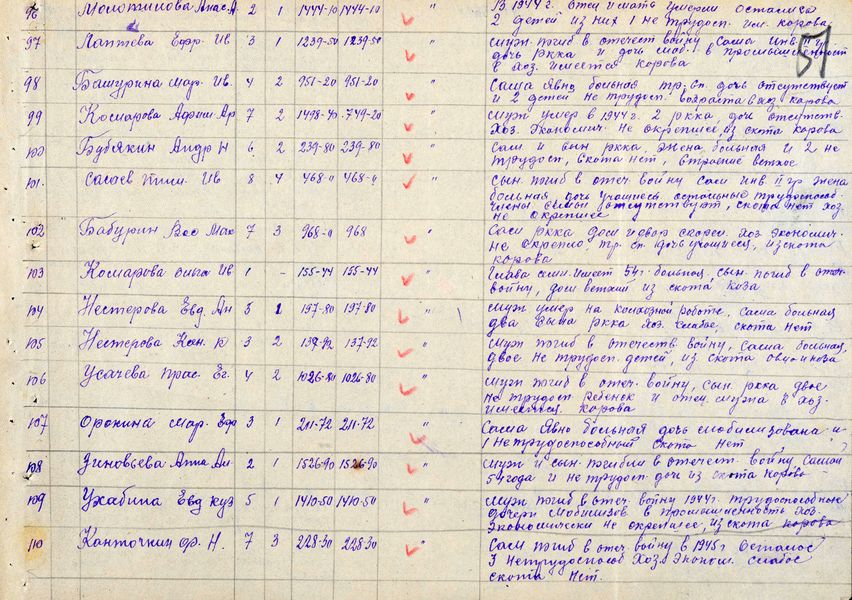 96 Молотилова Анас. А 2 1 1444-10 1444-10 " В 1944 г. отец и мать умерли остались
2 детей из них 1 не трудосп. им. корова
97 Лаптева Ефр. Ив 3 1 1239-50 1239-50 " муж погиб в отечест войну Сама Инв. II гр
дочь ркка и дочь моб. в промышленност
в хоз. имеется корова
57
98 Башурина Мар. Ив. 4 2 951-20 951-20 " Сама Явно больная тр. сп. дочь отсутствует
и 2 детей не трудосп. возраста в хоз корова
99 Комарова Афан Ар 7 2 1498-40 749-20 " муж умер в 1944 г. 2 ркка, дочь отсутств.
Хоз. Экономич. не окрепшее из скота корова
100 Бубякин Андр Н 6 2 239-80 239-80 " Сам и сын ркка, жена больная и 2 не
трудосп, скота нет, строение ветхое
101. Ив 8 4 468-0 468-0 " сын погиб в отеч войну Сам инв II гр жена
больная, дочь учащиеся остальные трудоспособ.
члены семьи отсутствует, скота нет хоз.
не окрепшее
102 Бабурин Вас Мак 7 3 968-0 968 " Сам ркка дом и двор хоз экономич.
не окрепло тр. сп. дочь учащиеся, из скота
корова
103 Комарова Ольга Ив 1 - 155-44 155-44 " Глава семи имеет 54 г. больная, сын погиб в отеч
войну, дом ветхий из скота коза
104 Нестерова Евд. Ан 3 1 197-80 197-80 " муж умер на колхозной работе, сама больная
два сына ркка хоз. слабое, скота нет
105 Нестерова К 3 2 137-92 137-92 " муж погиб в отечеств войну, сама больная,
двое не трудосп. детей, из скота овца и коза
106 Усачева Прас. Ег. 4 2 1026-80 1026-80 " муж погиб в отеч. войну, сын ркка двое
не трудосп ребенык и отец мужа в хоз.
имеется корова
107 Оронина Мар. Ефр 3 1 211-72 211-72 " Сама Явно больная дочь мобилизована и
1 нетрудоспособный скота нет
108 Зиновьева Анна Ан. 2 1 1526-90 1526-90 " муж и сын погибли в отечест. войну Самой
54 года и не трудосп доч из скота корова
109 Ухабина Евд куз 5 1 1410-50 1410-50 " муж погиб в отеч. войну 1944 г. трудоспособные
дочери мобилизов в промышленность хоз.
Экономически не окрепшее, из скота корова
110 Канточкин Ф. Н. 7 3 228-30 228-30 " Сам погиб в отеч. войну в 1945 г Осталось
3 нетрудоспособ Хоз. Эконом. слабое
скота нет.